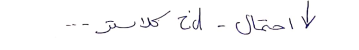 ↓ احتمال - zid کلاستر ---